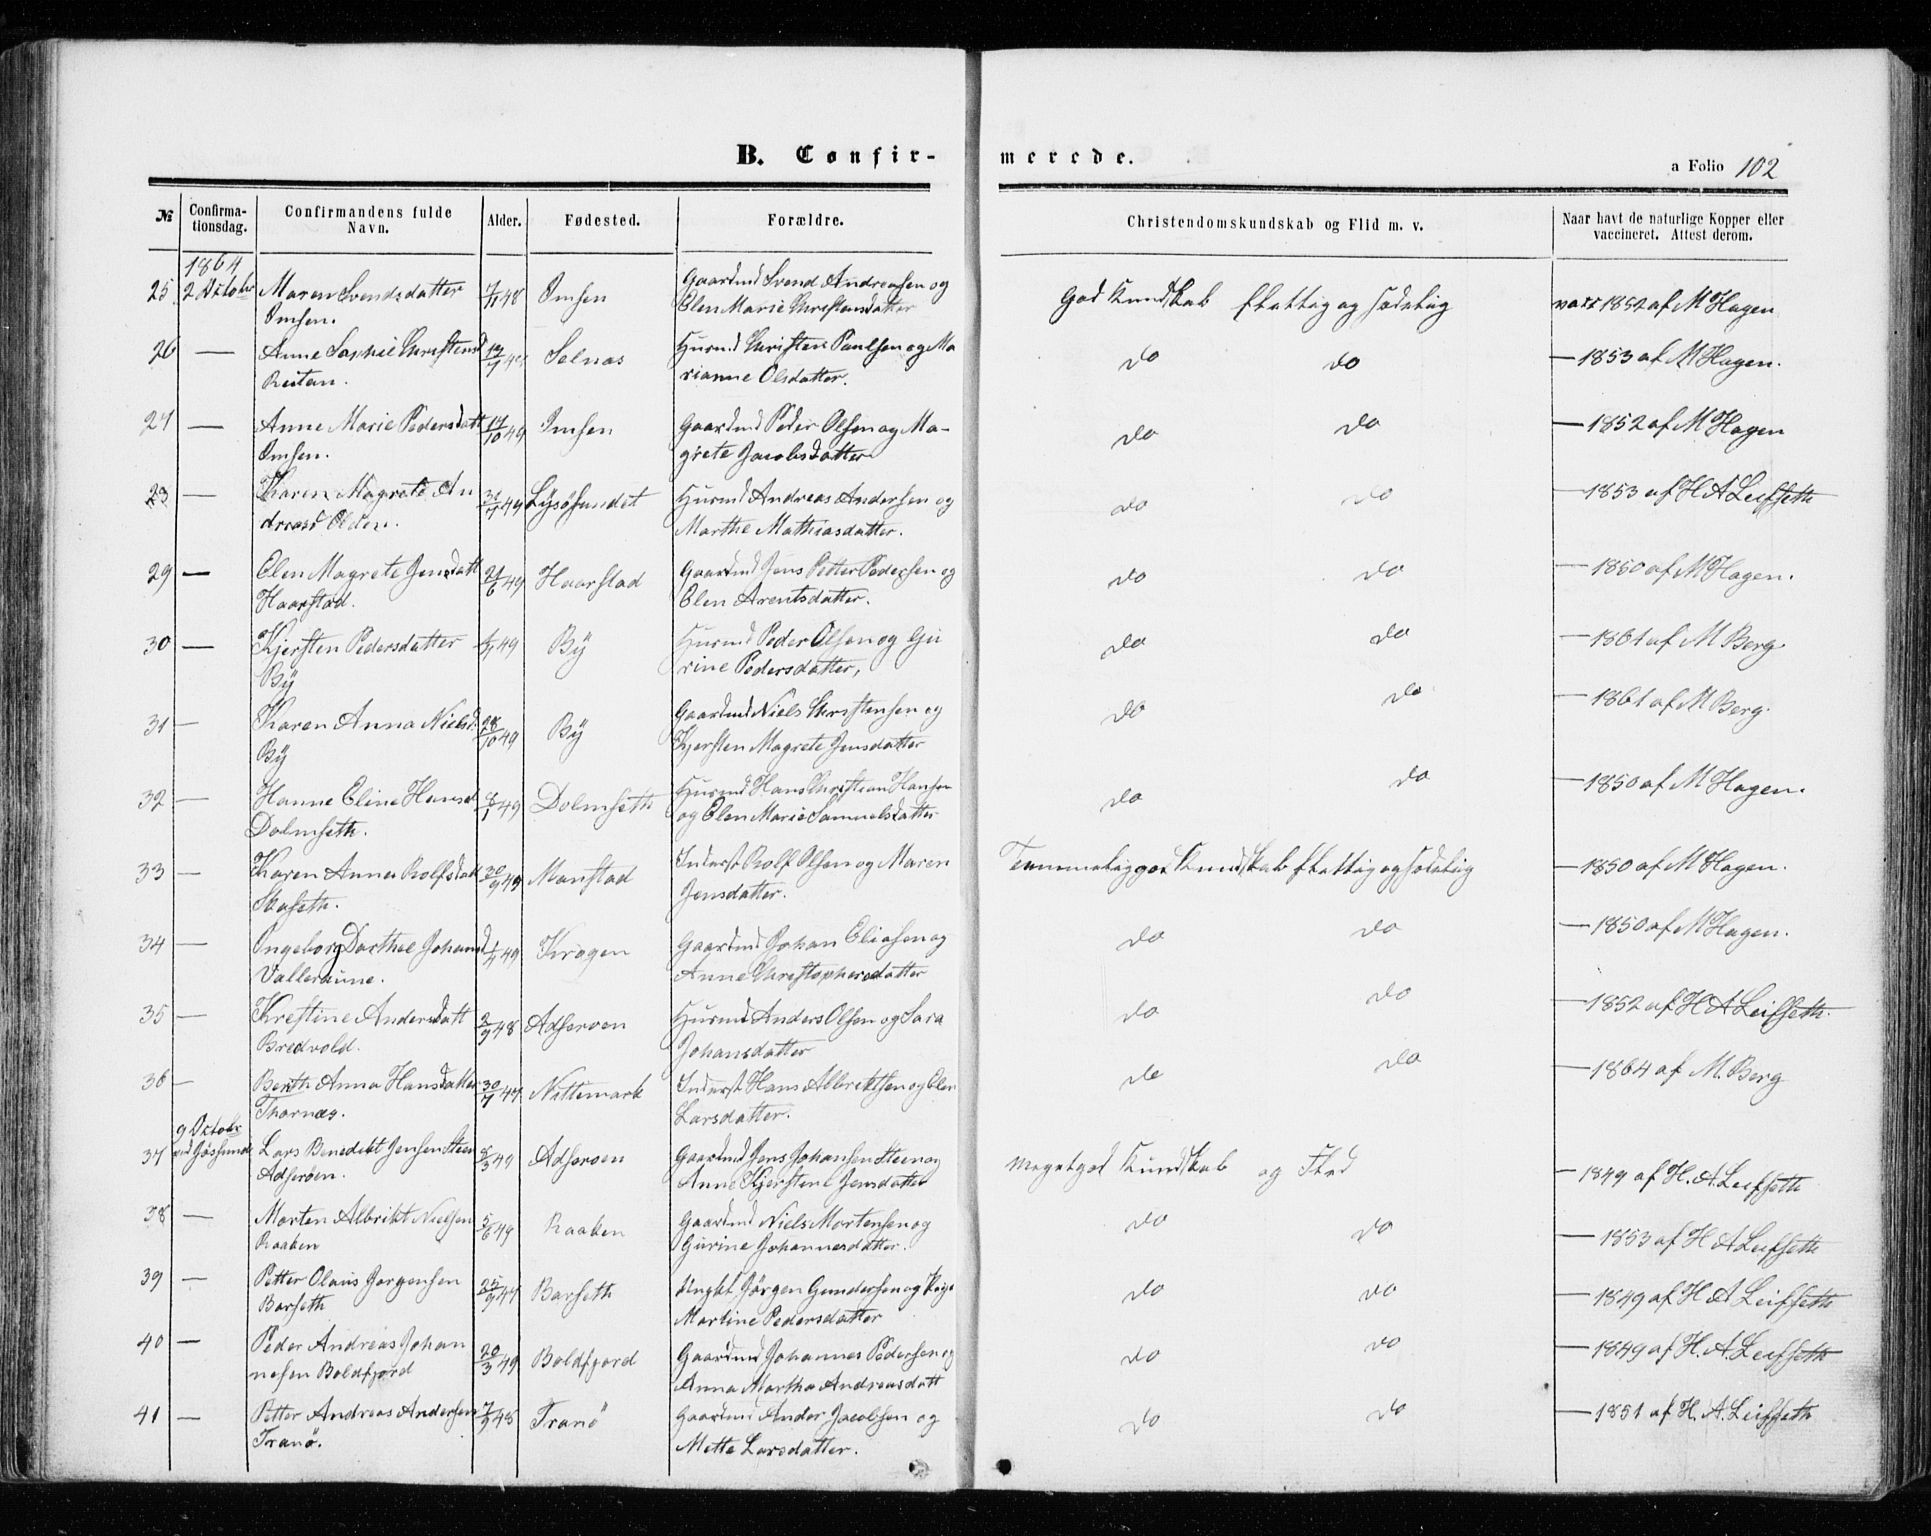 B. Confir-merede.
a Folio 102
№ Confirma-tionsdag. Confirmandens fulde Navn. Alder. Fødested. Forældre. Christendomskundskab og Flid m. v. Naar havt de naturlige Kopper eller vaccineret. Attest derom.
1864
25 2 Octobr Maren Svendsdatter 7/11 48 Imsen Gaardmd Svend Andreasen og God Kundskab flittig og sædelig vacc 1852 af M Hagen
Imsen. Elen Marie Christensdatter
26 — Anne Sophie Christensd Selnæs Husmd Christen Paulsen og Ma do do — 1853 af M Hagen.
Reitan. rianne Olsdatter.
27 — Anne Marie Pedersdatt 14/10 49 Imsen Gaardmd Peder Olsen og Ma- do do — 1852 af M Hagen
Imsen. grete Jacobsdatter
28 — Karen Magrete An Lysøsundet Husmd Andreas Andersen og do do — 1853 af H A Leifseth
dreasd Olden. Marthe Mathiasdatter.
29 — Elen Magrete Jensdatt 21/6 49 Haarstad Gaardmd Jens Petter Pedersen og do do — 1850 af M Hagen.
Haarstad. Elen Arentsdatter.
30 — Kjersten Pedersdatter 49 By Husmd Peder Olsen og Gu do do — 1861 af M Berg
By rine Pedersdatter,
31 — Karen Anna Nielsd. 28/10 49 By Gaardmd Niels Christensen og do do — 1861 af M Berg.
By Kjersten Magrete Jensdatter
32 — Hanne Eline Hansd 8/1 49 Dolmseth Husmd Hans Christian Hansen do do — 1850 af M Hagen.
Dolmseth. og Elen Marie Samuelsdatter
33 — Karen Anna Rolfsdatt 30/9 49 Monstad Inderst Rolf Olsen og Maren Temmelig god Kundskab flittig og sædelig — 1850 af M Hagen.
Skaseth. Jensdatter.
34 — Ingeborg Dorthee Johansd 49 Krogen Gaardmd Johan Eliasen og do do — 1850 af M Hagen.
Valleraune. Anne Christophersdatter
35 — Kristine Andersdatt 2/9 48 Adseroen Husmd Anders Olsen og Sara do do — 1852 af H A Leifseth.
Bredvold. Johansdatter
36 — Berth Anna Hansdatter 30/7 47 Nettemark Inderst Hans Albriktsen og Elen do do — 1864 af M. Berg
Thornæs. Larsdatter.
9 Octobr
37 ved Jøssund Lars Benedikt Jensen Steen 8/3 49 Adseroen Gaardmd Jens Johansen Steen og Meget god Kundskab og Flid — 1849 af H. A. Leifseth
Adserøen. Anne Kjerstine Jensdatter
38 — Morten Albrikt Nielsen 5/6 49 Raaken Gaardmd Niels Mortensen og do do — 1853 af H A Leifseth
Raaken Gurine Johannesdatter.
39 — Petter Olaus Jørgensen 25/9 47 Barseth Ungkl Jørgen Gundersen og Pige do do — 1849 af H A Leifseth
Barseth Martine Pedersdatter
40 — Peder Andreas Johan 20/3 49 Boldfjord Gaardmd Johannes Pedersen og do do — 1849 af H. A. Leifseth
nesen Boldfjord Anna Martha Andreasdatt
41 — Petter Andreas Andersen 7/9 48 Tranø Gaardmd Ander Jacobsen og do do — 1851 af H. A. Leifseth
Tranø. Mette Larsdatter.